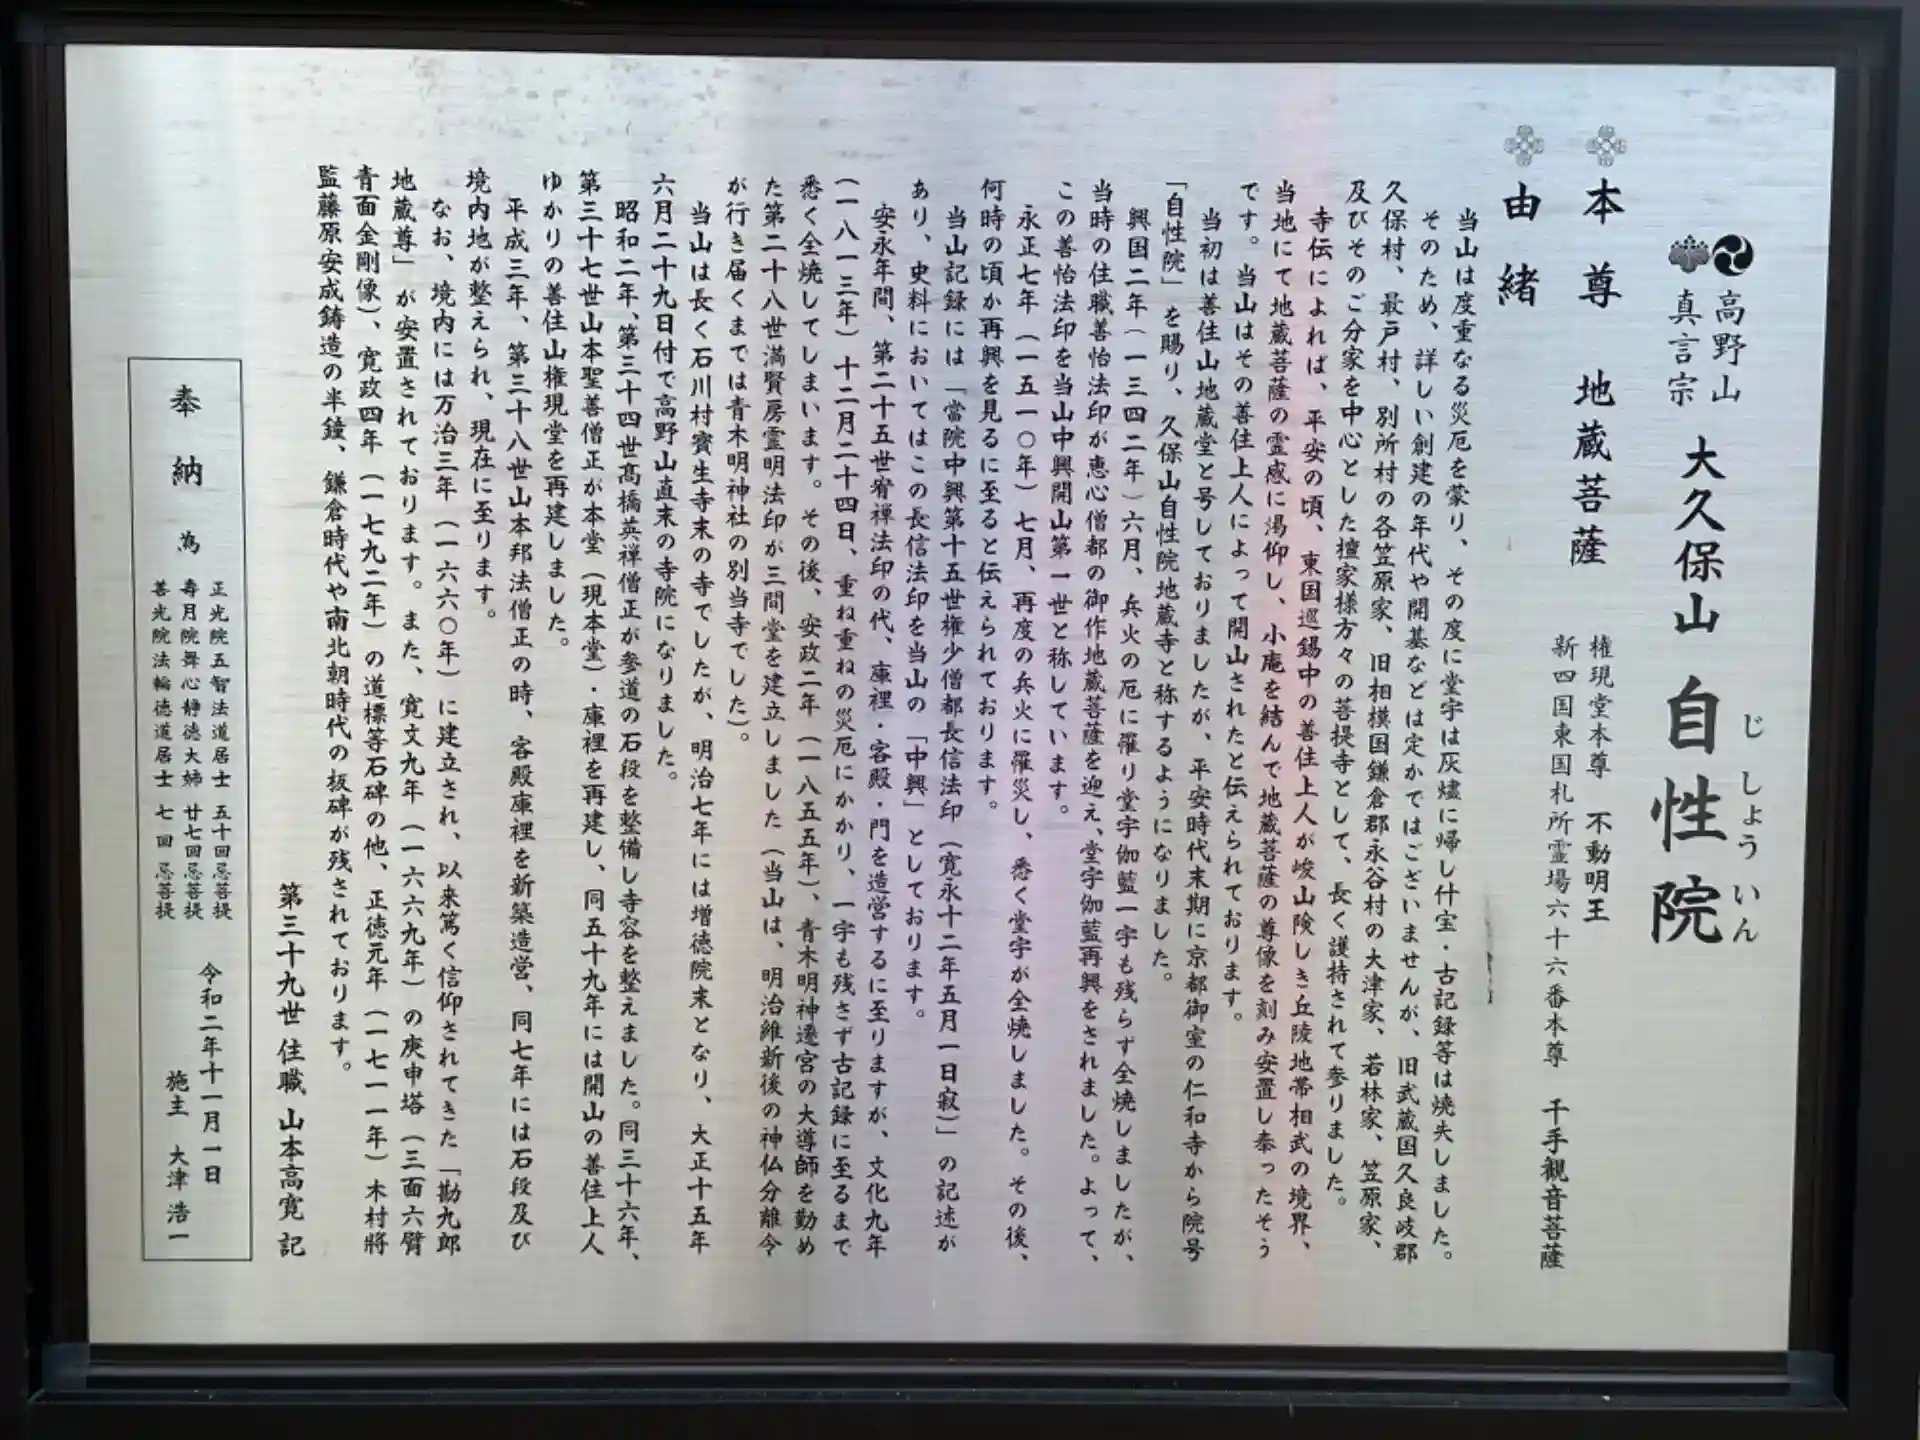 高野山
真言宗
大久保山 自性院
じしょういん
本尊 地蔵菩薩
権現堂本尊 不動明王
新四国東国札所霊場六十六番本尊 千手観音菩薩
由緒
当山は度重なる災厄を蒙り、その度に堂宇は灰燼に帰し什宝・古記録等は焼失しました。
そのため、詳しい創建の年代や開基などは定かではございませんが、旧武蔵国久良岐郡
久保村、最戸村、別所村の各笠原家、旧相模国鎌倉郡永谷村の大津家、若林家、笠原家、
及びそのご分家を中心とした檀家様方々の菩提寺として、長く護持されて参りました。
寺伝によれば、平安の頃、東国巡錫中の善住上人が峻山険しき丘陵地帯相武の境界、
当地にて地蔵菩薩の霊感に渇仰し、小庵を結んで地蔵菩薩の尊像を刻み安置し奉ったそう
です。当山はその善住上人によって開山されたと伝えられております。
当初は善住山地蔵堂と号しておりましたが、平安時代末期に京都御室の仁和寺から院号
「自性院」を賜り、久保山自性院地蔵寺と称するようになりました。
興国二年(一三四二年)六月、兵火の厄に罹り堂宇伽藍一宇も残らず全焼しましたが、
当時の住職善怡法印が恵心僧都の御作地蔵菩薩を迎え、堂宇伽藍再興をされました。よって、
この善怡法印を当山中興開山第一世と称しています。
永正七年(一五一〇年)七月、再度の兵火に罹災し、悉く堂宇が全焼しました。その後、
何時の頃か再興を見るに至ると伝えられております。
当山記録には「當院中興第十五世権少僧都長信法印(寛永十二年五月一日寂)」の記述が
あり、史料においてはこの長信法印を当山の「中興」としております。
安永年間、第二十五世宥禅法印の代、庫裡・客殿・門を造営するに至りますが、文化九年
(一八一三年)十二月二十四日、重ね重ねの災厄にかかり、一宇も残さず古記録に至るまで
悉く全焼してしまいます。その後、安政二年(一八五五年)、青木明神遷宮の大導師を勤め
た第二十八世満賢房霊明法印が三間堂を建立しました(当山は、明治維新後の神仏分離令
が行き届くまでは青木明神社の別当寺でした)。
当山は長く石川村寳生寺末の寺でしたが、明治七年には増徳院末となり、大正十五年
六月二十九日付で高野山直末の寺院になりました。
昭和二年、第三十四世髙橋英禅僧正が参道の石段を整備し寺容を整えました。同三十六年、
第三十七世山本聖善僧正が本堂(現本堂)・庫裡を再建し、同五十九年には開山の善住上人
ゆかりの善住山権現堂を再建しました。
平成三年、第三十八世山本邦法僧正の時、客殿庫裡を新築造営、同七年には石段及び
境内地が整えられ、現在に至ります。
なお、境内には万治三年(一六六〇年)に建立され、以来篤く信仰されてきた「勘九郎
地蔵尊」が安置されております。また、寛文九年(一六六九年)の庚申塔(三面六臂
青面金剛像)、寛政四年(一七九二年)の道標等石碑の他、正徳元年(一七一一年)木村將
監藤原安成鋳造の半鐘、鎌倉時代や南北朝時代の板碑が残されております。
第三十九世住職 山本高寛 記
奉納 為
正光院五智法道居士 五十回忌菩提
壽月院舞心靜徳大姉 廿七回忌菩提
善光院法輪徳道居士 七回忌菩提
令和二年十一月一日
施主 大津浩一